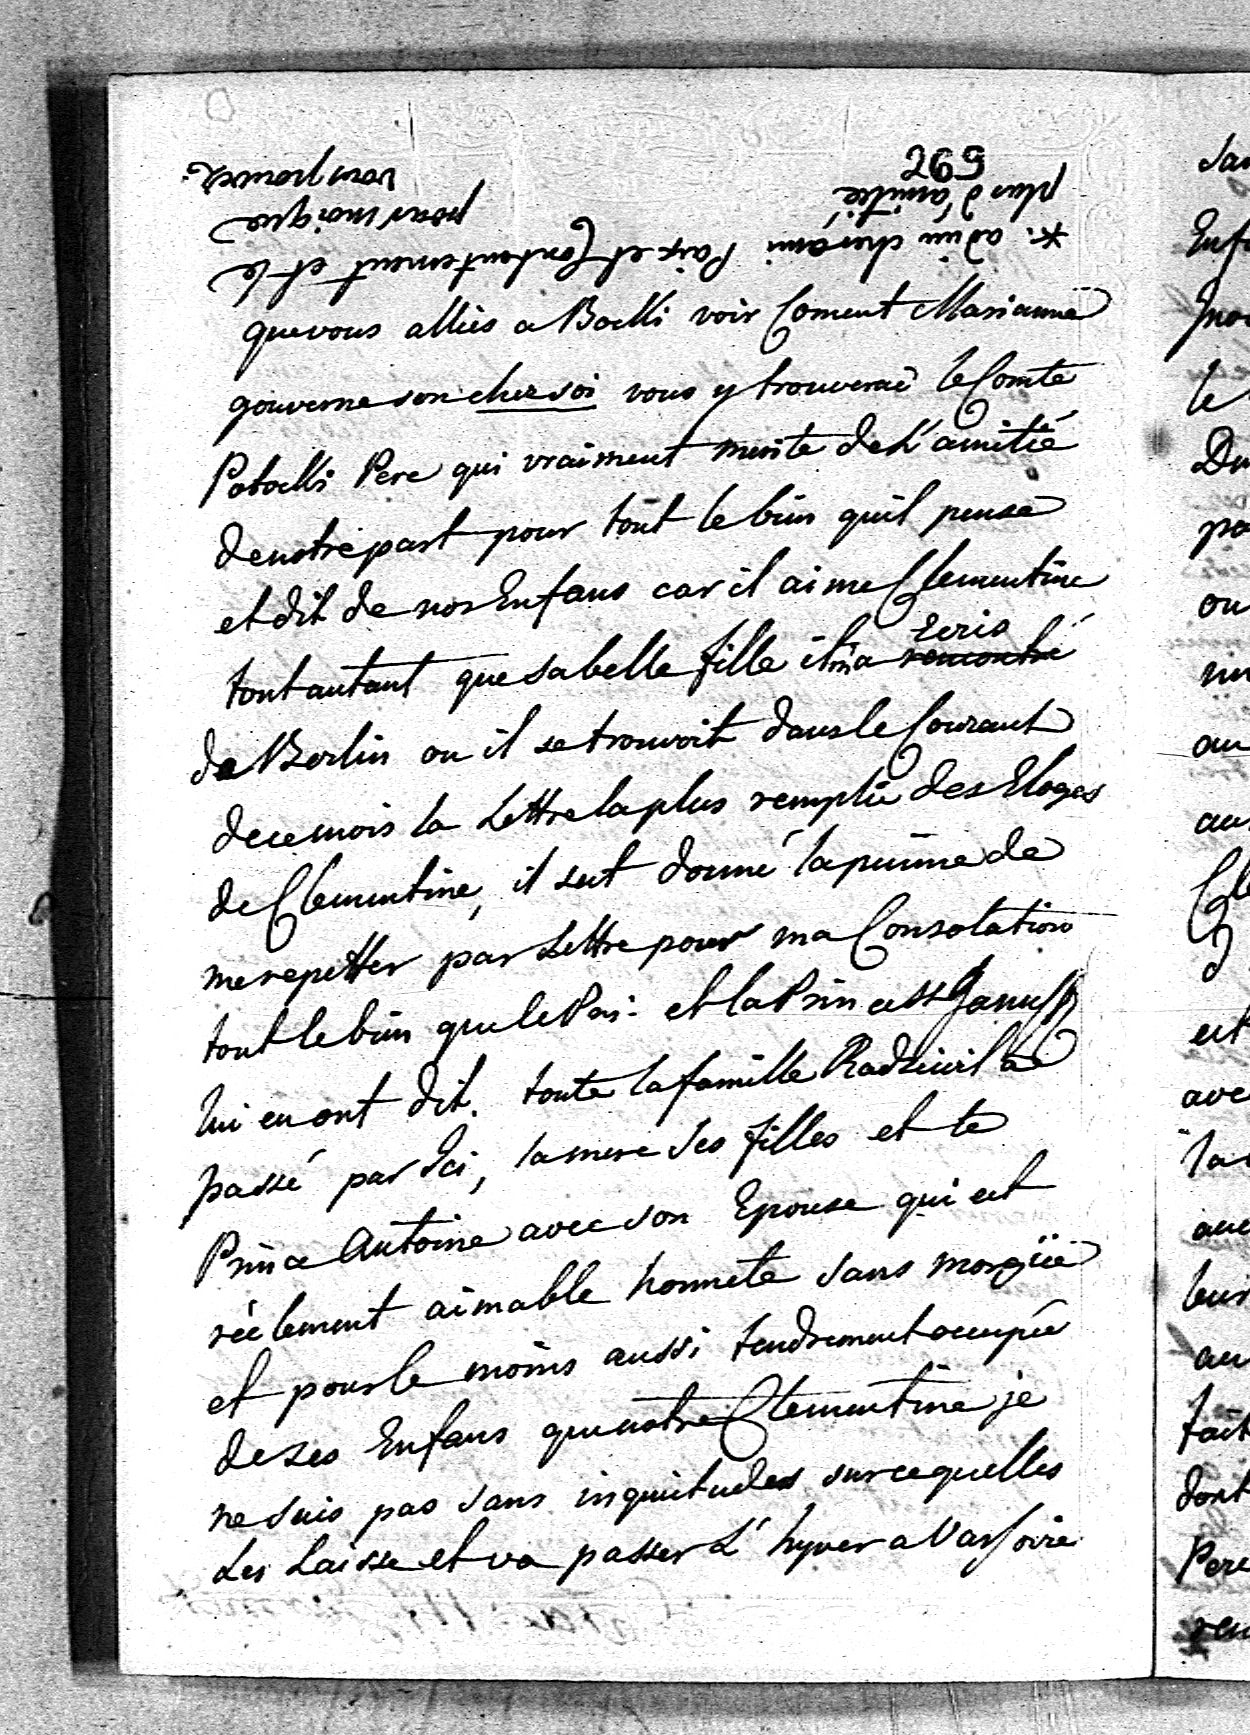 269
plus d'amitié
*: a d'un cher ami Paix et Contentement et le
pour moi que
vous promes
que vous alliés a Bocki voir Coment Marianne
gouverne son chez soi vous y trouveraé le Comte
Potocki Pere qui vraiment merite de L'amitié
de notre part pour tout le bien quil pense
et dit de nos Enfans car il aime Clementine
tout autant que sa belle fille il m'a rencontré Ecris
de Berlin ou il se trouvoit dans le Courant
de ce mois la Lettre la plus remplie des Eloges
de Clementine, il sest donné la peinne de
me repetter par Lettre pour ma Consolation
tout le bien que le Pri: et la Princesse
lui en ont dit. toute la famille Radziwil a
passé par Ici, la mere ses filles et le
Prince Antoine avec son Epouse qui est
réelement aimable honnete sans morgüe
et pour le moins aussi tendrement occupée
de ses Enfans que notre Clementine je
ne suis pas sans inquietudes sur ce quelles
les Laisse et va passer L'hyver a Varsovie